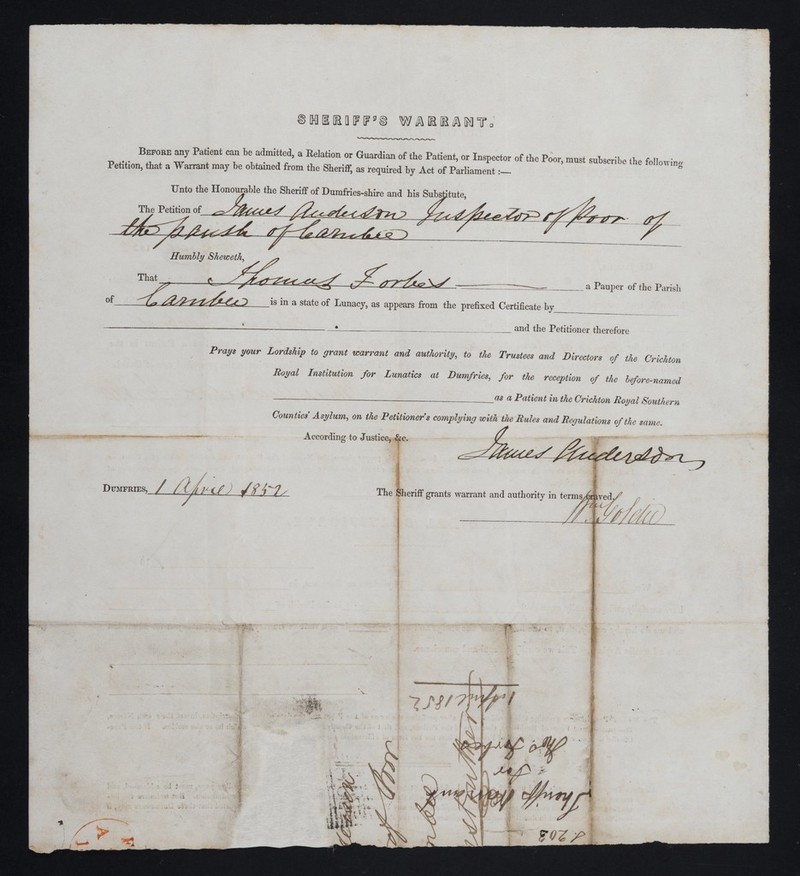 SHERIFF'S WARRANT.
BEFORE any Patient can be admitted, a Relation or Guardian of the Patient, or Inspector of the Poor, must subscribe the following
Petition, that a Warrant may be obtained from the Sheriff, as required by Act of Parliament:—
Unto the Honourable the Sheriff of Dumfries-shire and his Substitute,
The Petition of James Anderson Inspector of Poor of
the parish of Carnbee
Humbly Sheweth,
That Thomas Forbes a Pauper of the Parish
of Carnbee is in a state of Lunacy, as appears from the prefixed Certificate by
and the Petitioner therefore
Prays your Lordship to grant warrant and authority, to the Trustees and Directors of the Crichton
Royal Institution for Lunatics at Dumfries, for the reception of the before-named
as a Patient in the Crichton Royal Southern
Counties' Asylum, on the Petitioner's complying with the Rules and Regulations of the same.
According to Justice, &c.
James Anderson
DUMFRIES, 1 April 1852 The Sheriff grants warrant and authority in terms craved,
Wm Goldie
Sheriffs Warrant
for
Tho. Forbes
1 April 1852